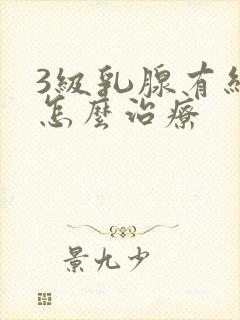 3級乳腺有
怎麼治療
景九少